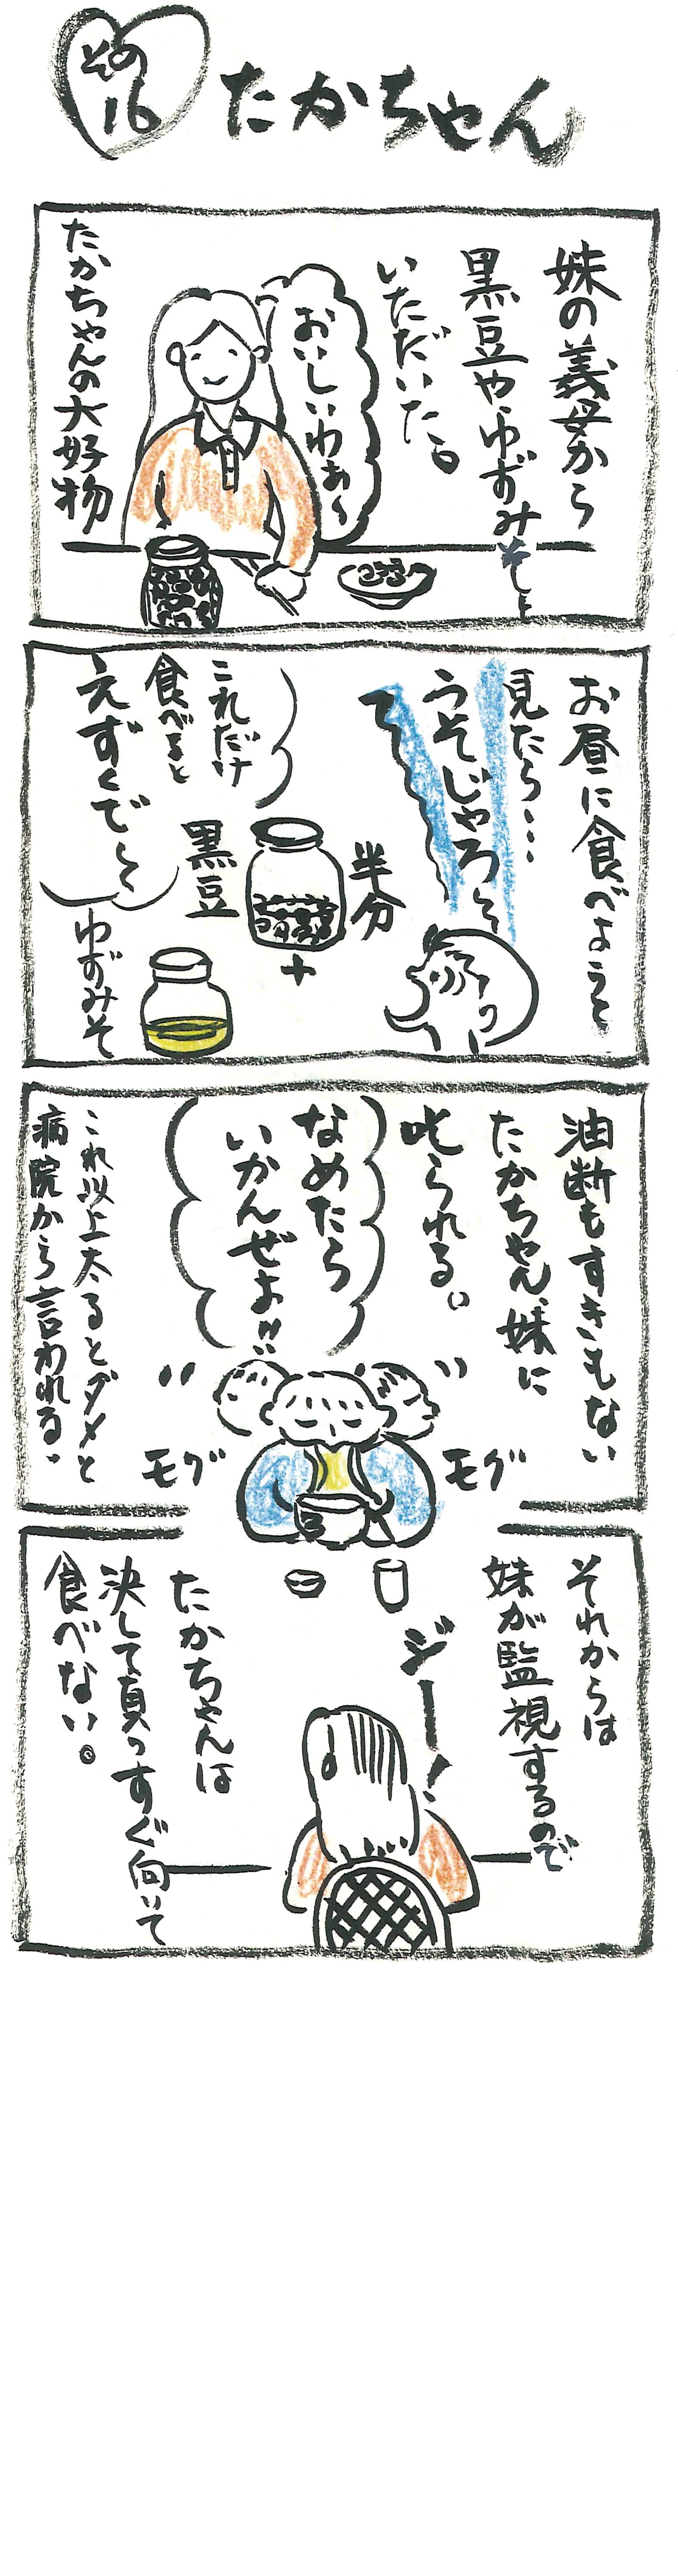 その
16
たかちゃん
妹の義母から
黒豆やゆずみそを
いただいた。
おいしいわぁ〜
たかちゃんの大好物
お昼に食べようと
見たら…
うそじゃろ〜
て
半分
黒豆
+
ゆずみそ
これだけ
食べると
えずくで〜
油断もすきもない
たかちゃん、妹に
叱られる。
なめたら
いかんぜよ!!
モグ
モグ
これ以上太るとダメと
病院から言われる、
それからは
妹が監視するので
ジー!
たかちゃんは
決して真っすぐ向いて
食べない。